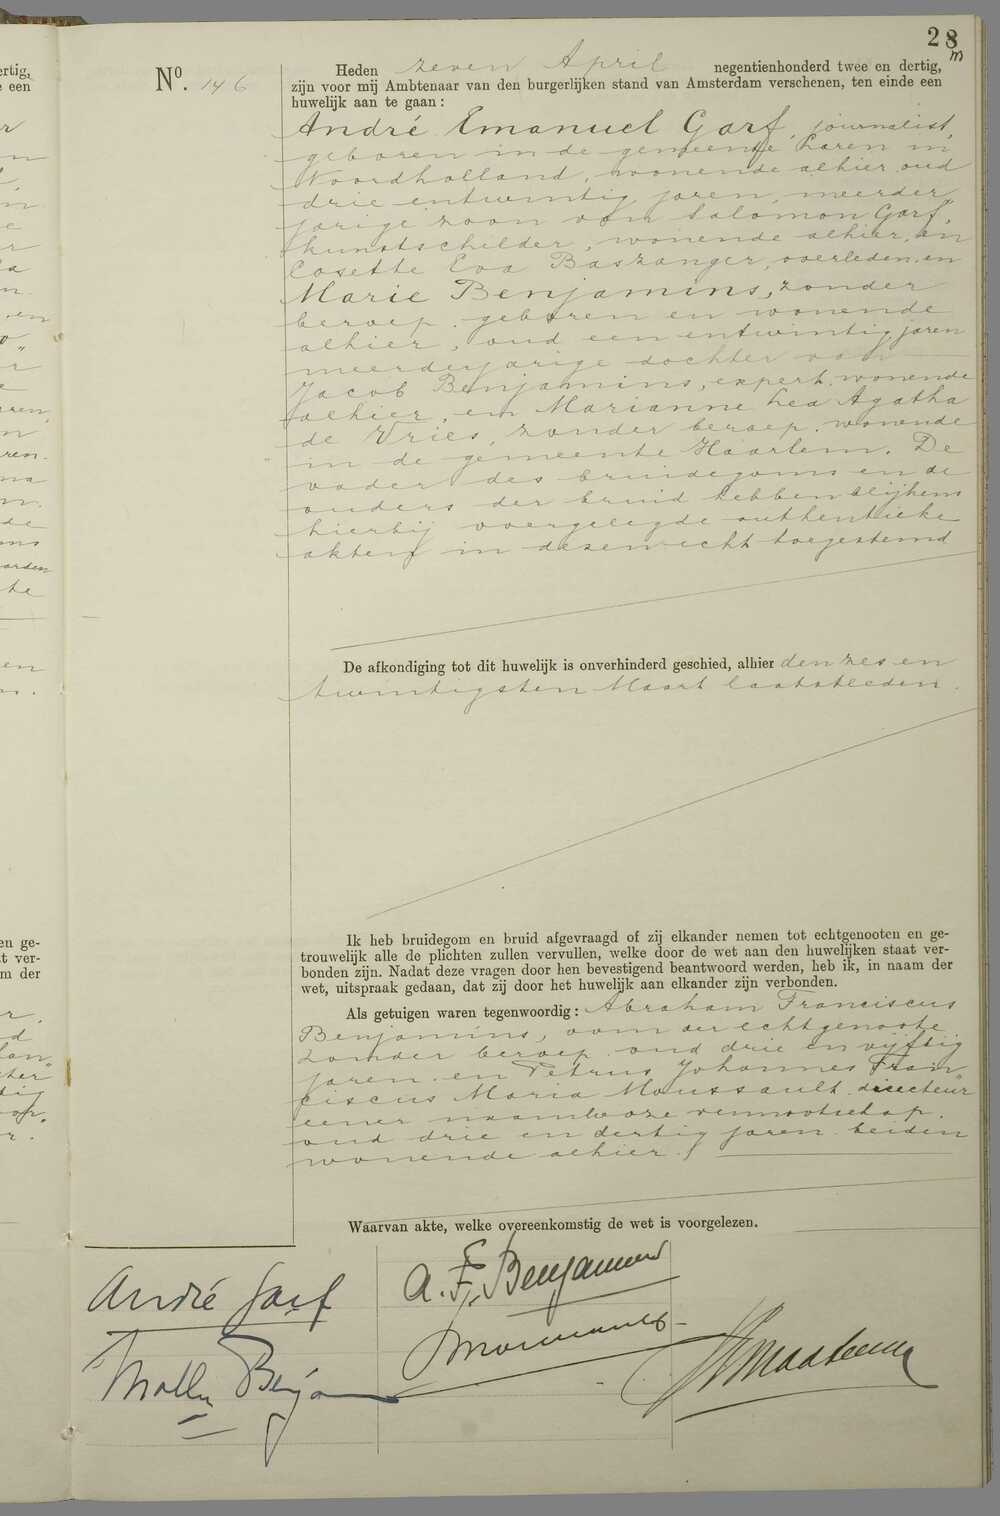 28
m
Nº. 146
Heden zeven April negentienhonderd twee en dertig,
zijn voor mij Ambtenaar van den burgerlijken stand van Amsterdam verschenen, ten einde een
huwelijk aan te gaan:
André Emanuel Garf, journalist,
geboren in de gemeente Laren in
Noordholland, wonende alhier, oud
drie entwintig jaren, meerder„
jarige zoon van Salomon Garf,
kunstschilder, wonende alhier, en
Cosette Eva Baszanger, overleden, en
Marie Benjamins, zonder
beroep, geboren en wonende
alhier, oud een entwintig jaren
meerderjarige dochter van
Jacob Benjamins, expert, wonende
alhier, en Marianne Lea Agatha
de Vries, zonder beroep, wonende
in de gemeente Haarlem. De
vader des bruidegoms en de
ouders der bruid hebben blijkens
hierbij overgelegde authentieke
akten in dezen echt toegestemd
De afkondiging tot dit huwelijk is onverhinderd geschied, alhier den zes en
twintigsten Maart laatstleden.
Ik heb bruidegom en bruid afgevraagd of zij elkander nemen tot echtgenooten en ge-
trouwelijk alle de plichten zullen vervullen, welke door de wet aan den huwelijken staat ver-
bonden zijn. Nadat deze vragen door hen bevestigend beantwoord werden, heb ik, in naam der
wet, uitspraak gedaan, dat zij door het huwelijk aan elkander zijn verbonden.
Als getuigen waren tegenwoordig: Abraham Franciscus
Benjamins, oom der echtgenoote,
zonder beroep, oud drie en vijftig
jaren en Petrus Johannes Fran„
ciscus Maria Moussault, directeur
eener naamloze vennootschap,
oud drie en dertig jaren, beiden
wonende alhier.
Waarvan akte, welke overeenkomstig de wet is voorgelezen.
André Garf
A. F. Benjamins
Molly Benjamins